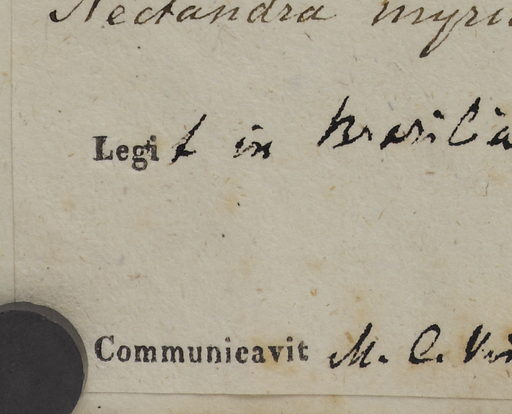 Nectandra myri
Legit in Brasilia
Communicavit M. C. Vin